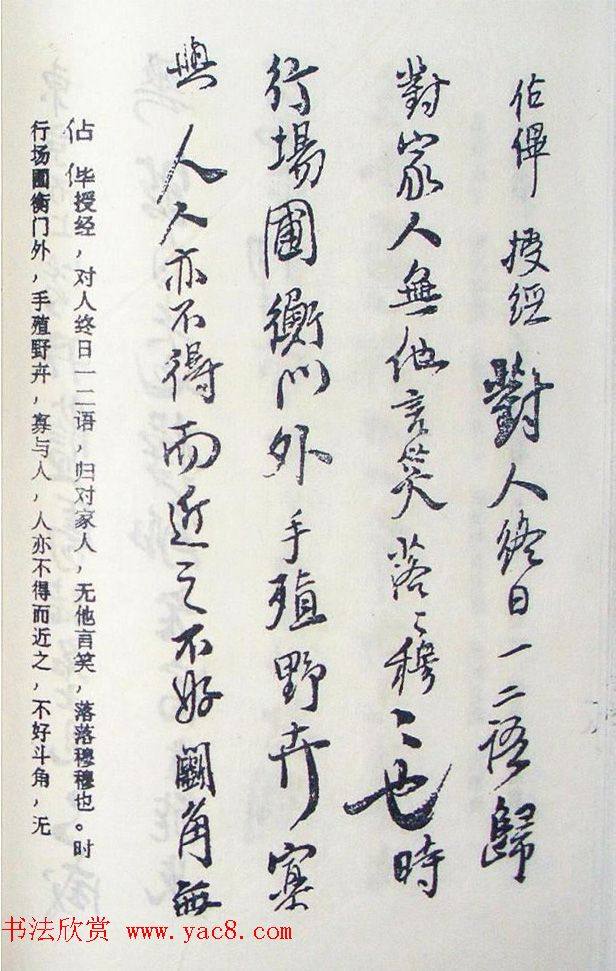 佔俾授經對人終日一二語歸
對家人無他言笑落〻穆〻也時
行場圃衡门外手殖野卉寡
與人人亦不得而近之不好鬭角無
佔俾授经，对人终日一二语，归对家人，无他言笑，落落穆穆也。时
行场圃衡门外，手殖野卉，寡与人，人亦不得而近之，不好斗角，无
书法欣赏 www.yac8.com